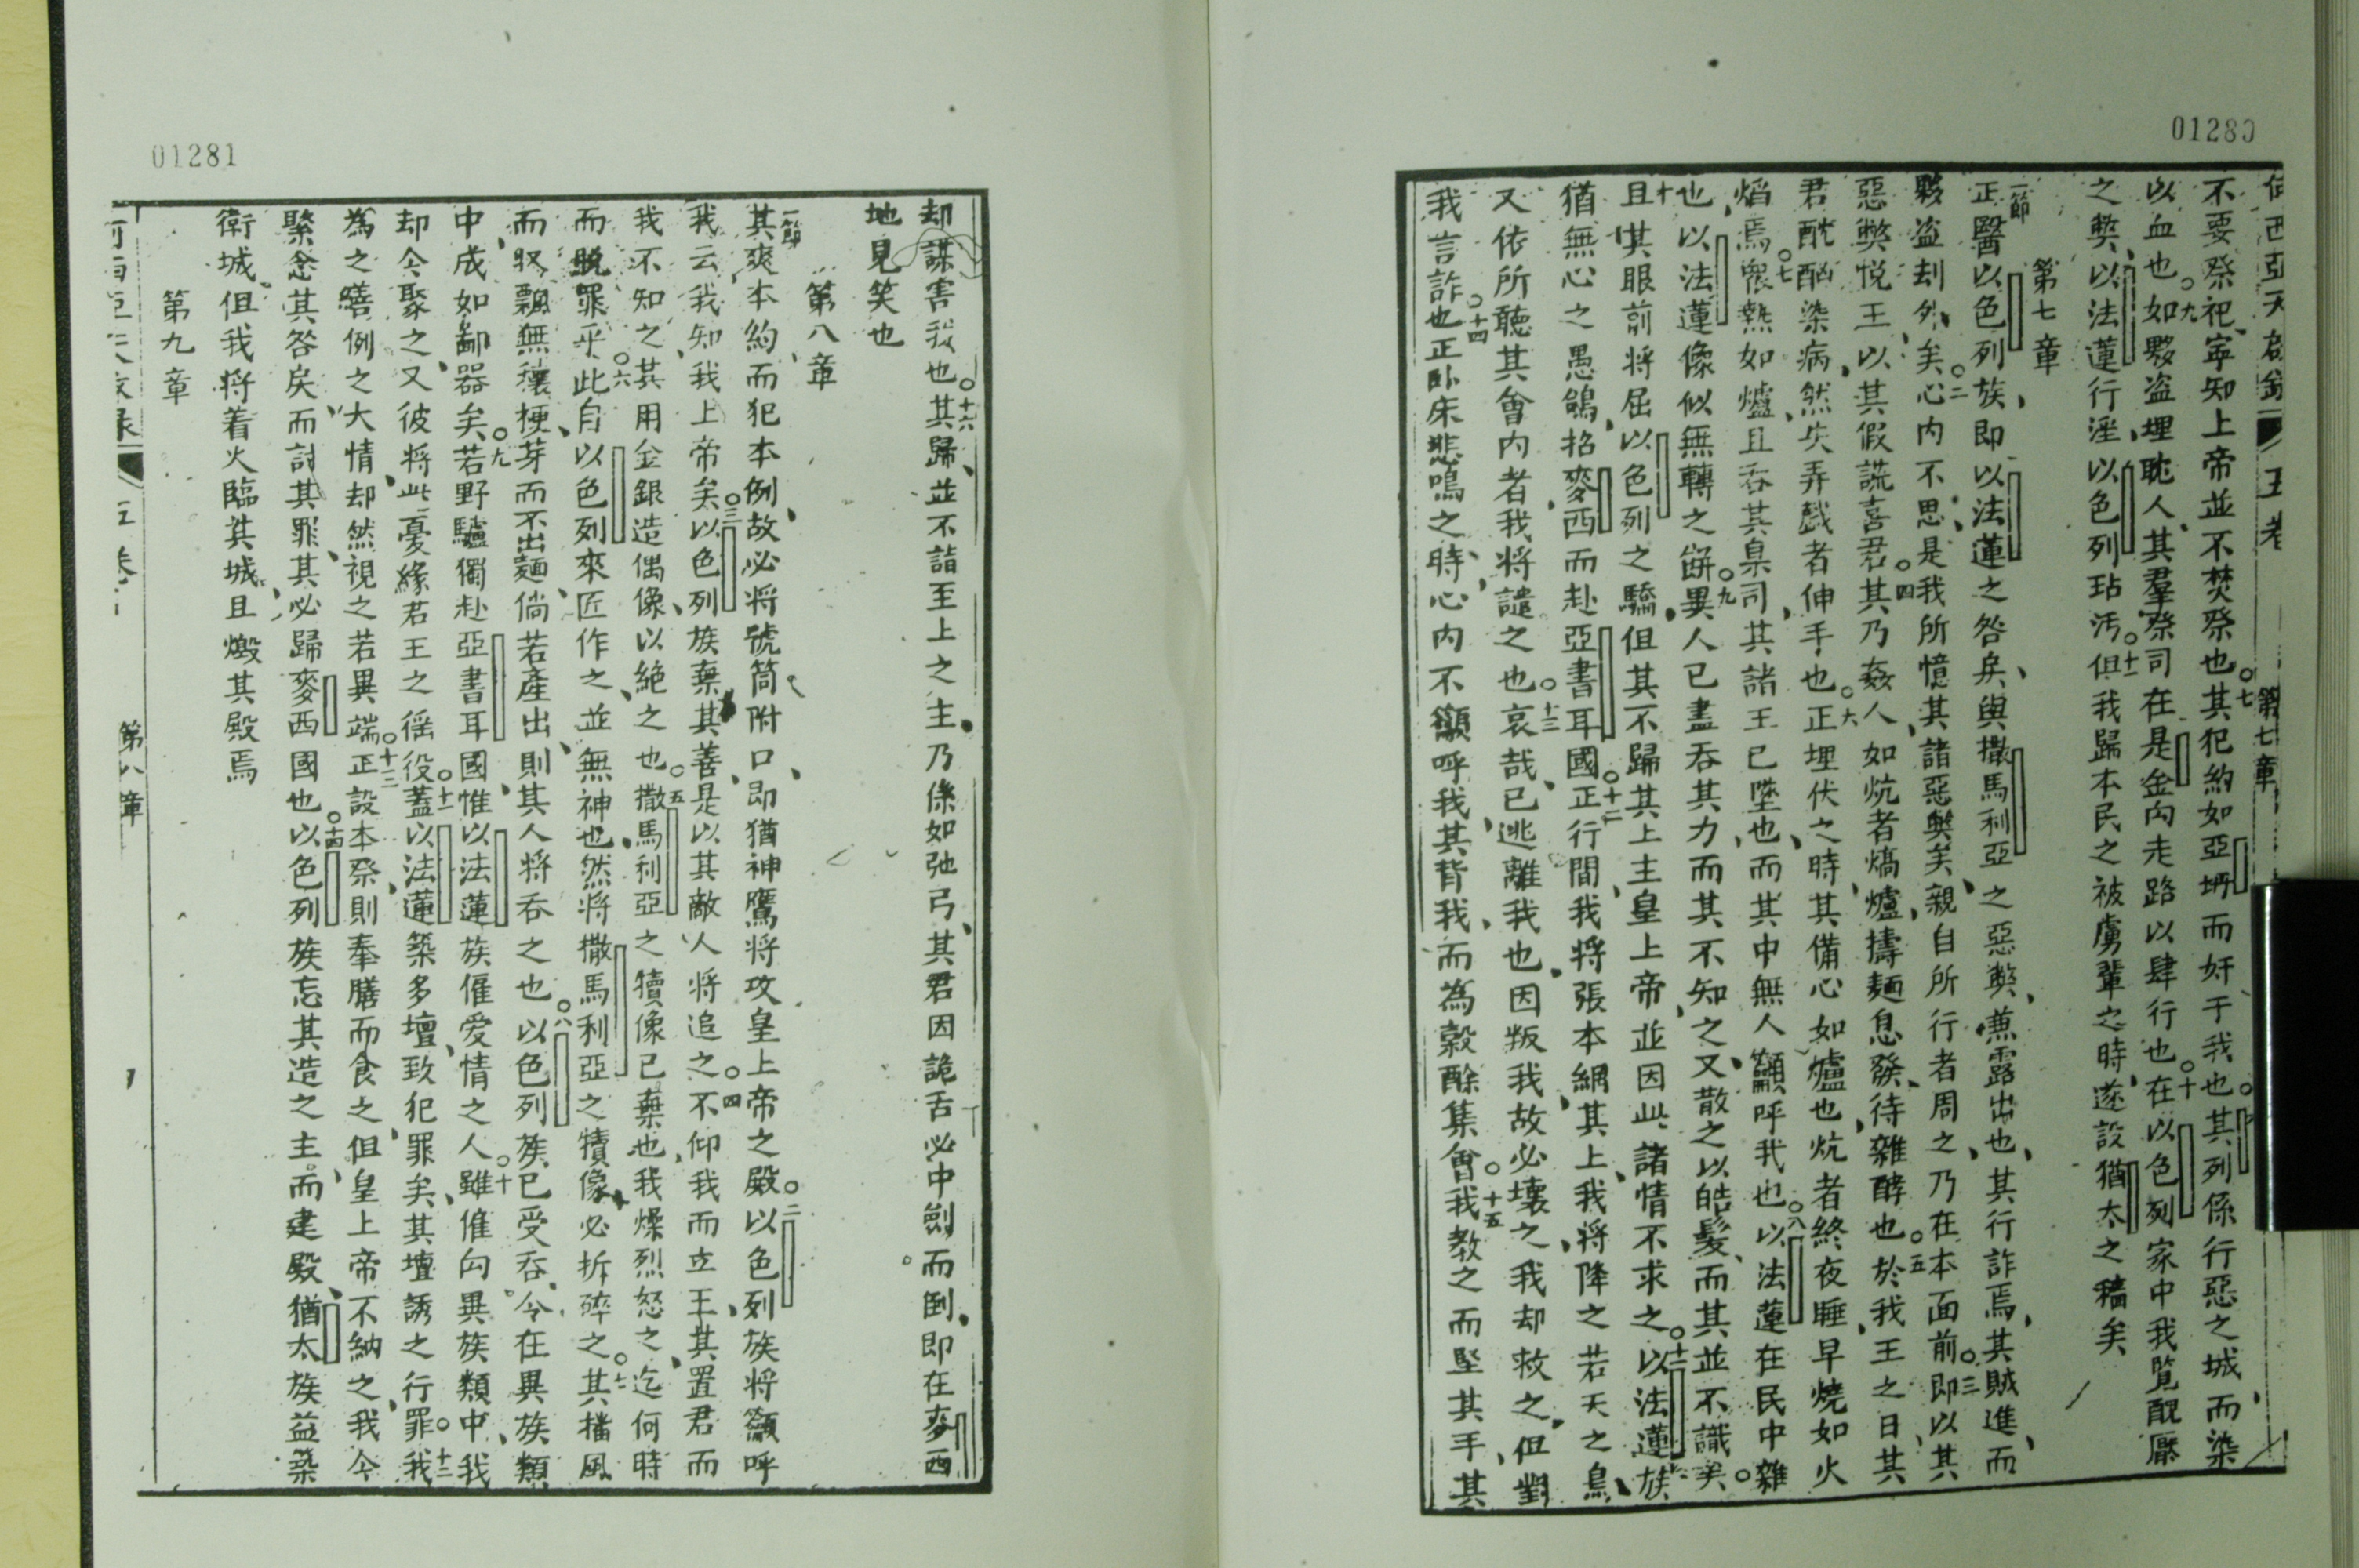 01280
何西亞天啟錄 五卷 第七章
不要祭祀寧知上帝並不焚祭也○七其犯約如亞坍而奸于我也○八其列係行惡之城而染
以血也○九如夥盜埋耽人其羣祭司在是金向走路以肆行也○十在以色列家中我覽醜壓
之弊以法蓮行淫以色列玷汚○十一但我歸本民之被虜輩之時遂設猶太之穡矣
第七章
一節正醫以色列族即以法蓮之咎矣與撒馬利亞之惡弊兼露出也其行詐焉其賊進而
夥盜刦外矣○二心內不思是我所憶其諸惡弊矣親自所行者周之乃在本面前○三即以其
惡弊悅王以其假謊喜君○四其乃姦人如炕者熇爐擣麵息發待雜酵也○五於我王之日其
君酖酗染病然失弄戲者伸手也○六正埋伏之時其備心如爐也炕者終夜睡早燒如火
焰焉○七衆熱如爐且吞其臬司其諸王已墜也而其中無人籲呼我也○八以法蓮在民中雜
也以法蓮像似無轉之餅○九異人已盡吞其力而其不知之又散之以皓髮而其並不識矣
○十且其眼前將屈以色列之驕但其不歸其上主皇上帝並因此諸情不求之○十一以法蓮族
猶無心之愚鴿招麥西而赴亞書耳國○十二正行間我將張本網其上我將降之若天之鳥
又依所聽其會內者我將譴之也○十三哀哉已逃離我也因叛我故必壞之我却救之但對
我言詐也○十四正卧床悲鳴之時心內不籲呼我其背我而為穀酴集會○十五我教之而堅其手其
01281
却謀害我也○十六其歸並不詣至上之主乃係如弛弓其君因詭舌必中劍而倒即在麥西
地見笑也
第八章
一節其爽本約而犯本例故必將號筒附口即猶神鷹將攻皇上帝之殿○二以色列族將籲呼
我云我知我上帝矣○三以色列族棄其善是以其敵人將追之○四不仰我而立王其置君而
我不知之其用金銀造偶像以絕之也○五撒馬利亞之犢像已棄也我燥烈怒之迄何時
而脫罪乎○六此自以色列來匠作之並無神也然將撒馬利亞之犢像必拆碎之○七其播風
而収飄無穰梗芽而不出麵倘若產出則其人將吞之也○八以色列族已受吞今在異族類
中成如鄙器矣○九若野驢獨赴亞書耳國惟以法蓮族僱愛情之人○十雖僱向異族類中我
却今聚之又彼將此憂緣君王之徭役○十一蓋以法蓮築多壇致犯罪矣其壇誘之行罪○十二我
為之繕例之大情却然視之若異端○十三正設本祭則奉膳而食之但皇上帝不納之我今
緊念其咎戾而討其罪其必歸麥西國也○十四以色列族忘其造之主而建殿猶太族益築
衛城但我將着火臨其城且燬其殿焉
第九章
何西亞天啟錄 五卷 第八章